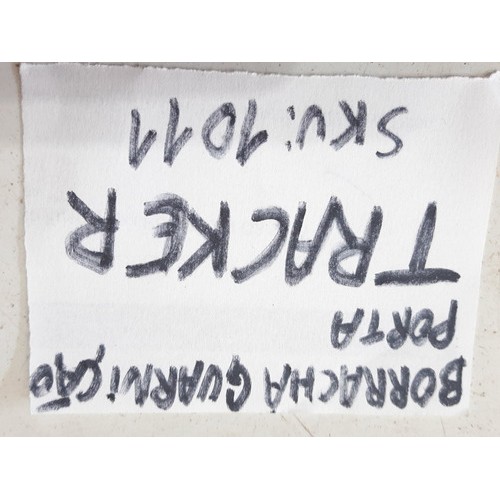 BORRACHA GUARNIÇÃO
PORTA
TRACKER
SKU: 1011